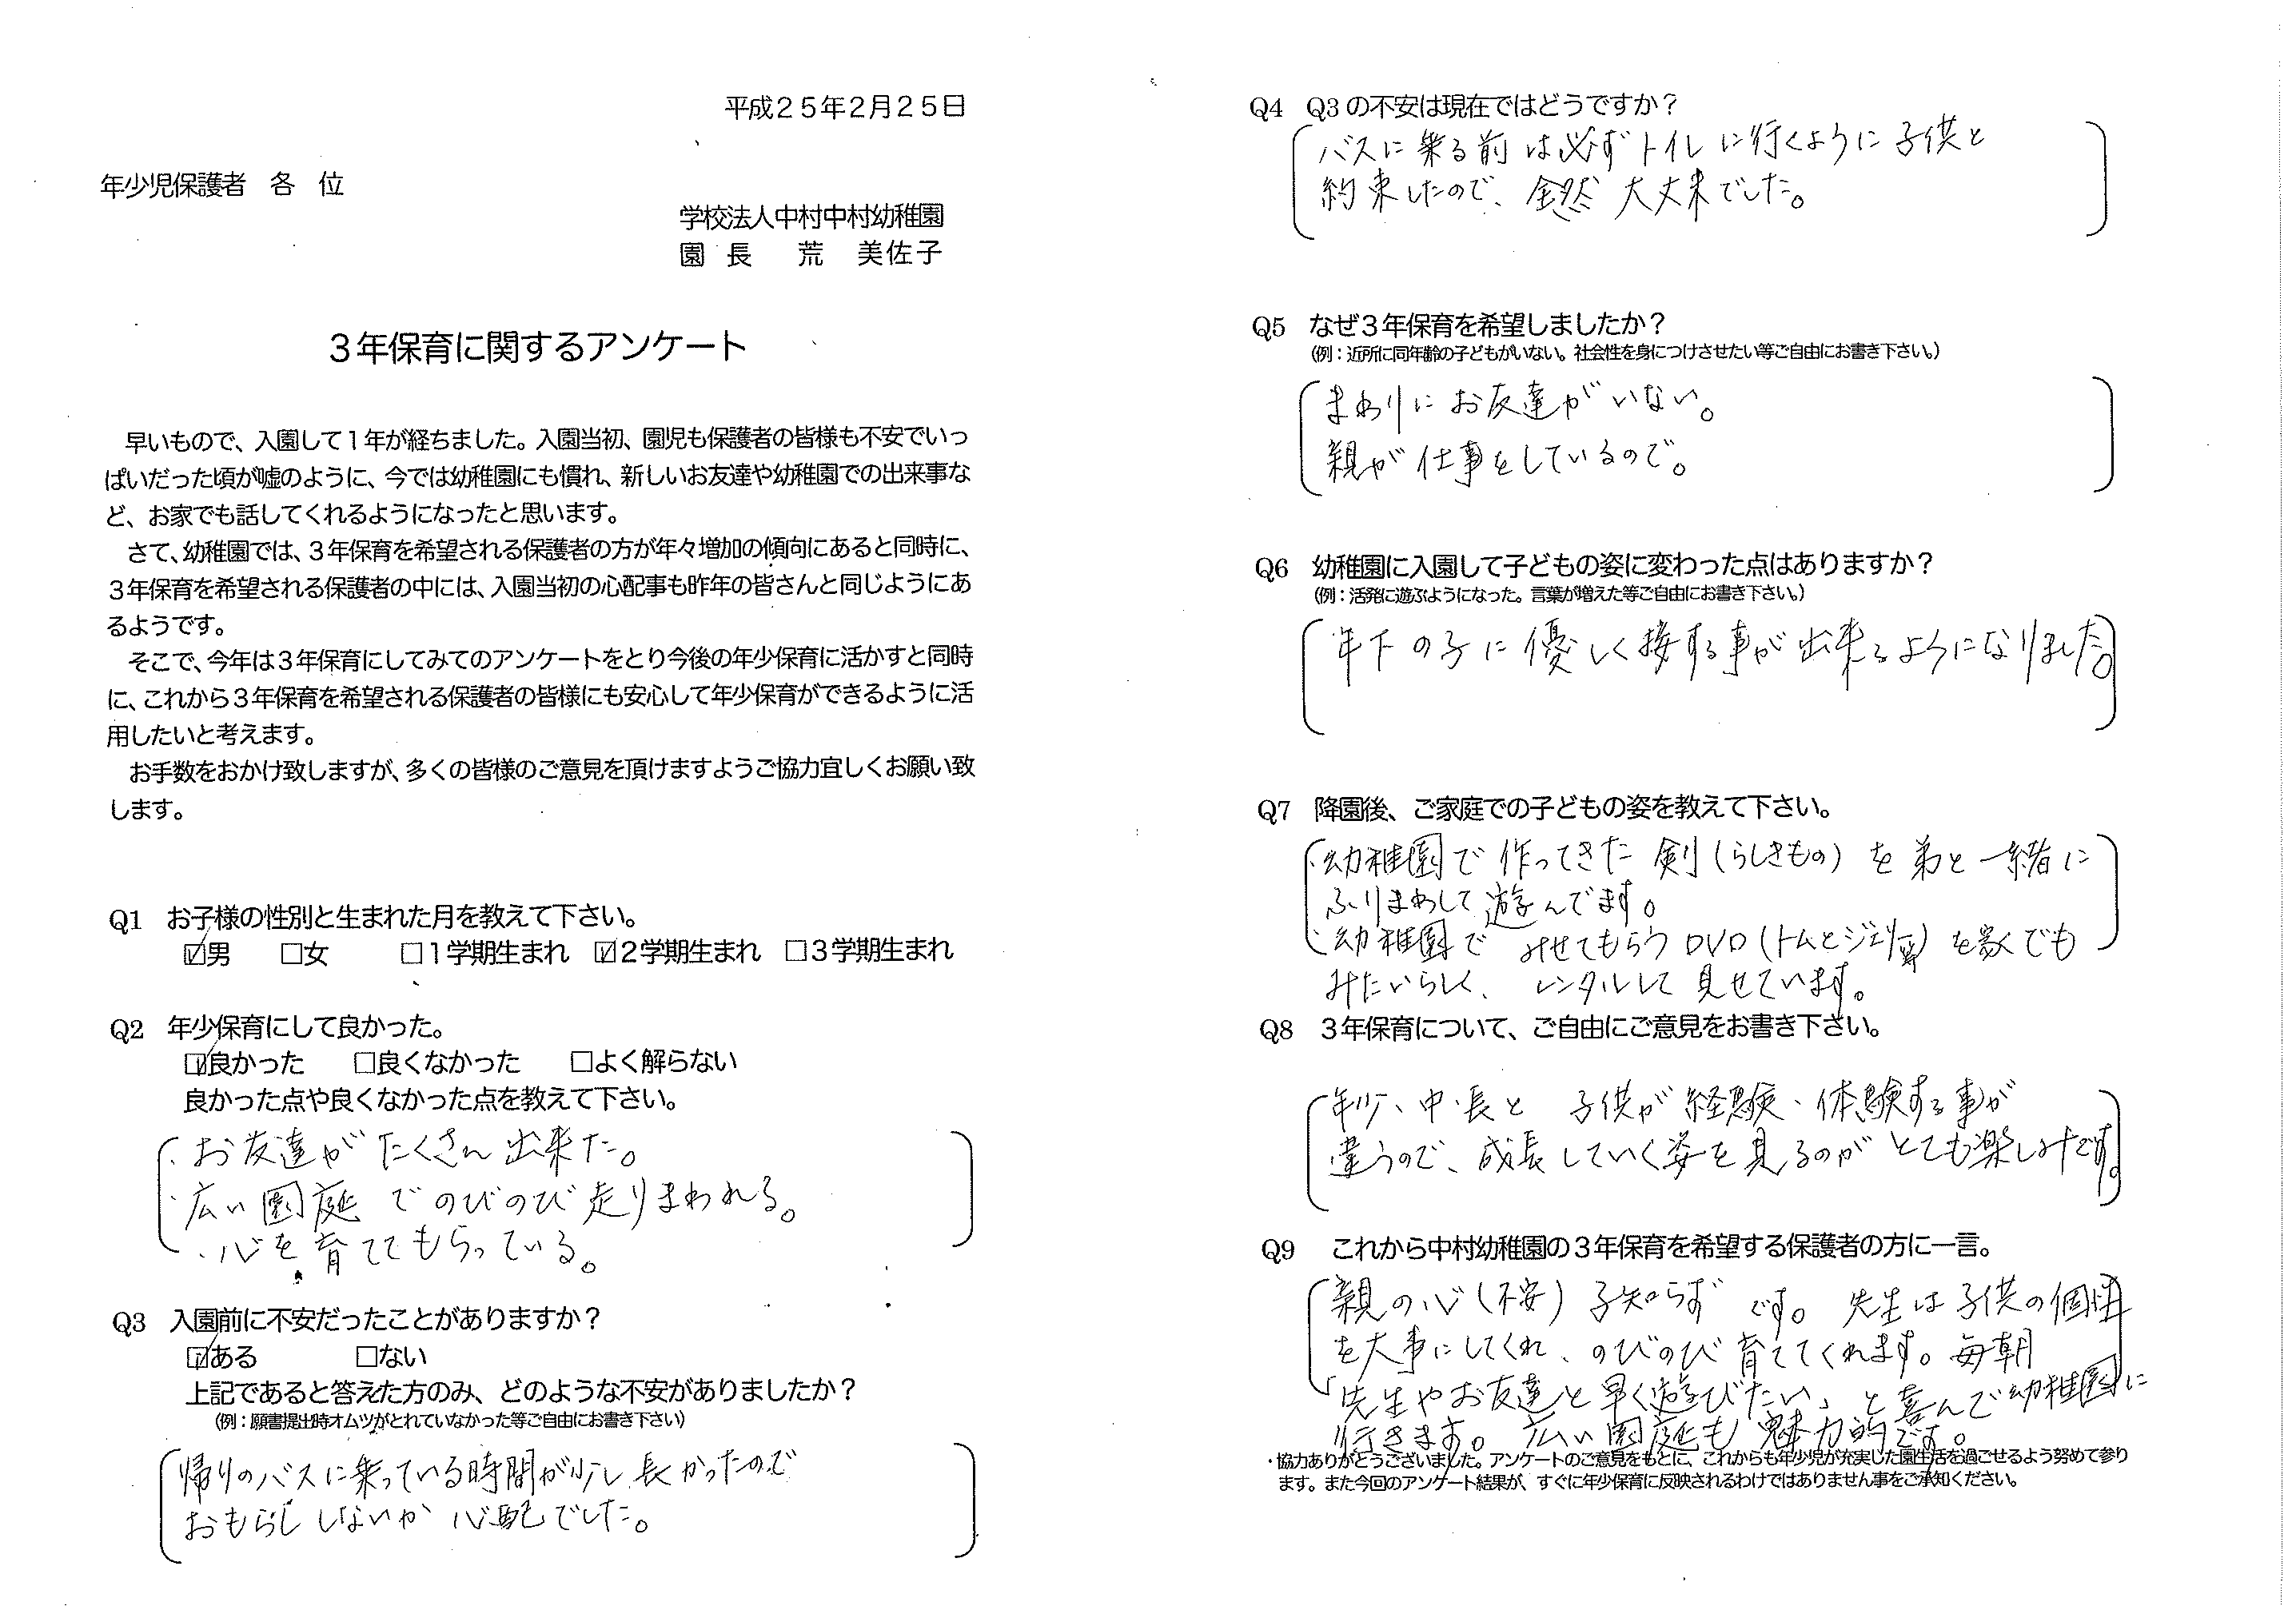 平成２５年２月２５日
年少児保護者　各　位
学校法人中村中村幼稚園
園　長　　荒　美佐子
３年保育に関するアンケート
早いもので、入園して１年が経ちました。入園当初、園児も保護者の皆様も不安でいっ
ぱいだった頃が嘘のように、今では幼稚園にも慣れ、新しいお友達や幼稚園での出来事な
ど、お家でも話してくれるようになったと思います。
さて、幼稚園では、３年保育を希望される保護者の方が年々増加の傾向にあると同時に、
３年保育を希望される保護者の中には、入園当初の心配事も昨年の皆さんと同じようにあ
るようです。
そこで、今年は３年保育にしてみてのアンケートをとり今後の年少保育に活かすと同時
に、これから３年保育を希望される保護者の皆様にも安心して年少保育ができるように活
用したいと考えます。
お手数をおかけ致しますが、多くの皆様のご意見を頂けますようご協力宜しくお願い致
します。
Q1　お子様の性別と生まれた月を教えて下さい。
☑男　□女　□１学期生まれ　☑２学期生まれ　□３学期生まれ
Q2　年少保育にして良かった。
☑良かった　□良くなかった　□よく解らない
良かった点や良くなかった点を教えて下さい。
・お友達がたくさん出来た。
・広い園庭でのびのび走りまわれる。
・心を育ててもらっている。
Q3　入園前に不安だったことがありますか？
☑ある　□ない
上記であると答えた方のみ、どのような不安がありましたか？
（例：願書提出時オムツがとれていなかった等ご自由にお書き下さい）
帰りのバスに乗っている時間が少し長かったので
おもらししないか心配でした。
Q4　Q3の不安は現在ではどうですか？
バスに乗る前は必ずトイレに行くように子供と
約束したので、全然大丈夫でした。
Q5　なぜ３年保育を希望しましたか？
（例：近所に同年齢の子どもがいない。社会性を身につけさせたい等ご自由にお書き下さい。）
まわりにお友達がいない。
親が仕事をしているので。
Q6　幼稚園に入園して子どもの姿に変わった点はありますか？
（例：活発に遊ぶようになった。言葉が増えた等ご自由にお書き下さい。）
年下の子に優しく接する事が出来るようになりました。
Q7　降園後、ご家庭での子どもの姿を教えて下さい。
・幼稚園で作ってきた剣（らしきもの）を弟と一緒に
ふりまわして遊んでます。
・幼稚園でみせてもらうDVD（トムとジェリー等）を家でも
みたいらしく、レンタルして見せています。
Q8　３年保育について、ご自由にご意見をお書き下さい。
年少、中・長と子供が経験・体験する事が
違うので、成長していく姿を見るのがとても楽しみです。
Q9　これから中村幼稚園の３年保育を希望する保護者の方に一言。
親の心（不安）子知らずです。先生は子供の個性
を大事にしてくれ、のびのび育ててくれます。毎朝
「先生やお友達と早く遊びたい」と喜んで幼稚園に
行きます。広い園庭も魅力的です。
・協力ありがとうございました。アンケートのご意見をもとに、これからも年少児が充実した園生活を過ごせるよう努めて参り
ます。また今回のアンケート結果が、すぐに年少保育に反映されるわけではありません事をご承知ください。